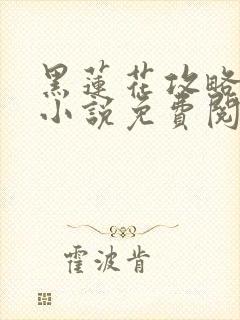 黑蓮花攻略
小說免費閱
霍波肯